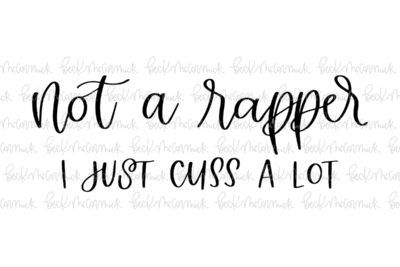 not a rapper
I JUST CUSS A LOT